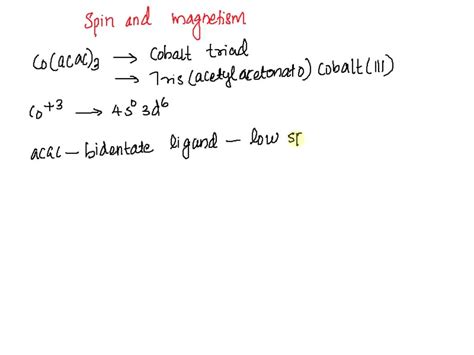 Spin and magnetism
Co(acac)₃ → Cobalt triad
→ Tris(acetylacetonato) Cobalt(III)
Co⁺³ → 4s⁰ 3d⁶
acac – bidentate ligand – low sp